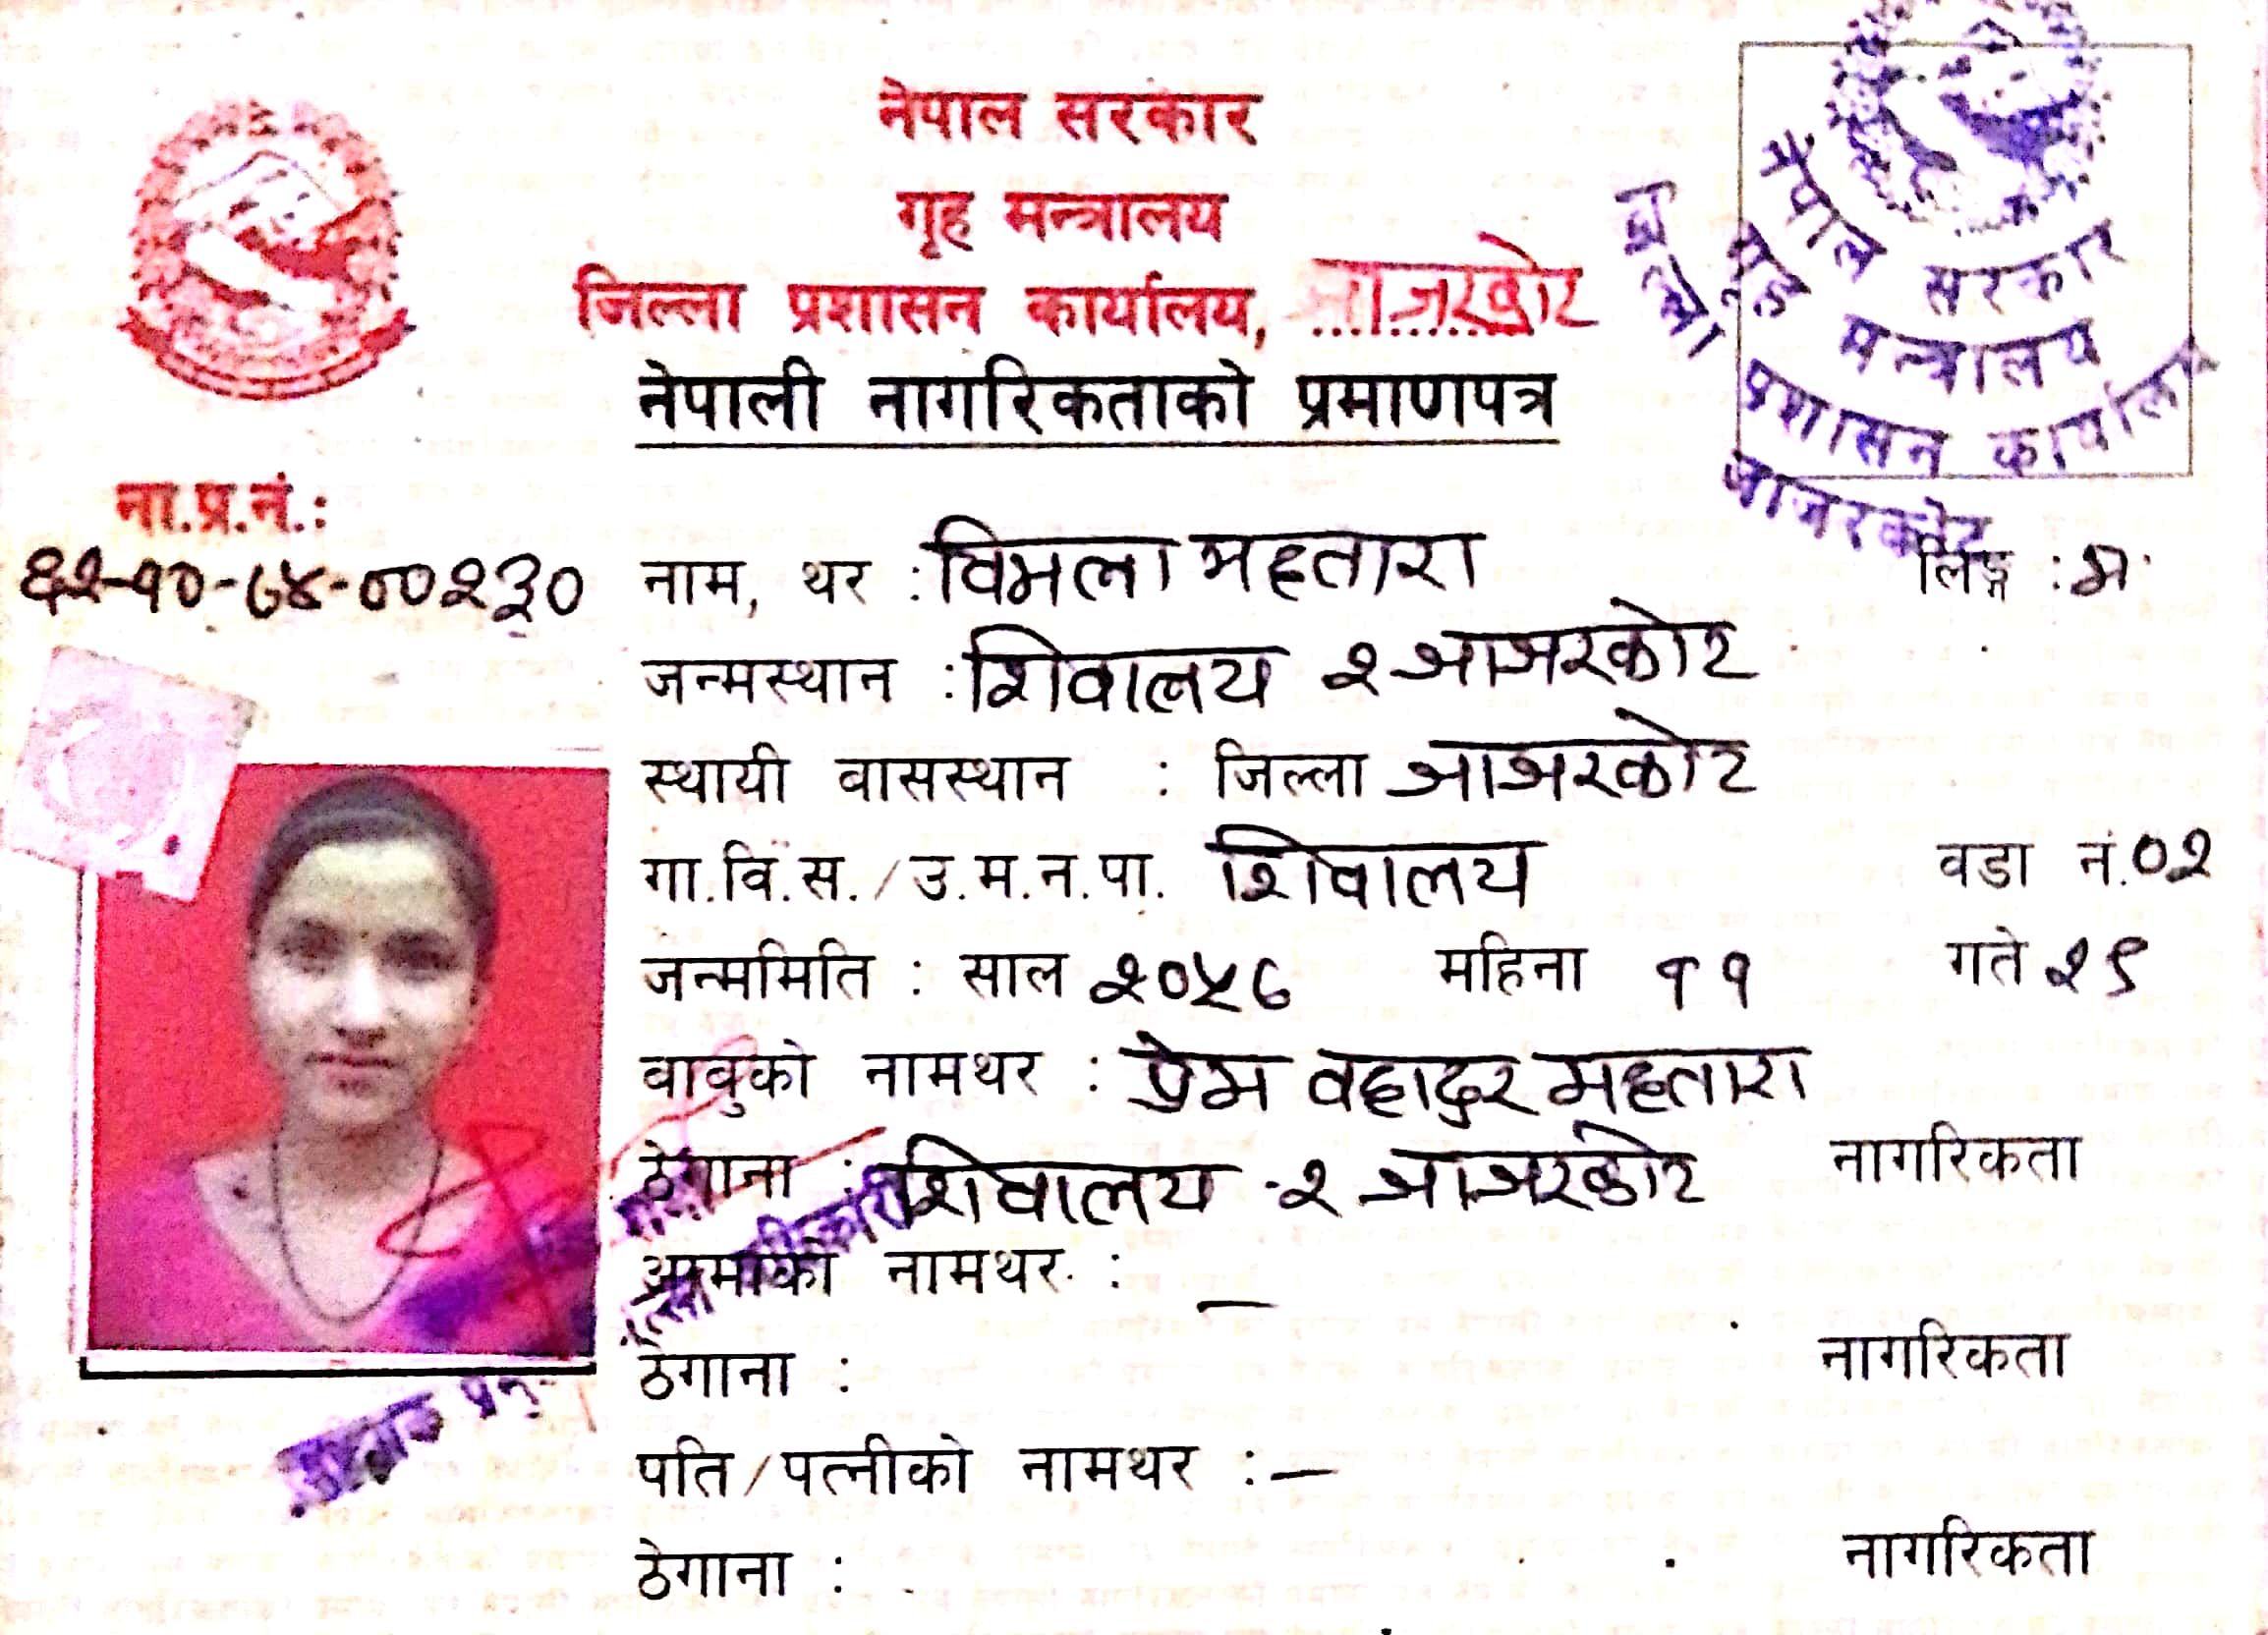 नेपाल सरकार
गृह मन्त्रालय
जिल्ला प्रशासन कार्यालय, जाजरकोट
नेपाली नागरिकताको प्रमाणपत्र
नेपाल सरकार
गृह मन्त्रालय
जिल्ला प्रशासन कार्यालय
जाजरकोट
ना.प्र.नं.:
६२-१०-७४-००२३०
नाम, थर : विमला महतारा लिङ्ग : म.
जन्मस्थान : शिवालय २ जाजरकोट
स्थायी वासस्थान : जिल्ला जाजरकोट
गा.वि.स./उ.म.न.पा. शिवालय वडा नं.०२
जन्ममिति : साल २०५८ महिना ११ गते २९
वावुको नामथर : प्रेम वहादुर महतारा
ठेगाना : शिवालय -२ जाजरकोट नागरिकता
आमाको नामथर : —
ठेगाना : नागरिकता
पति/पत्नीको नामथर : —
ठेगाना : नागरिकता